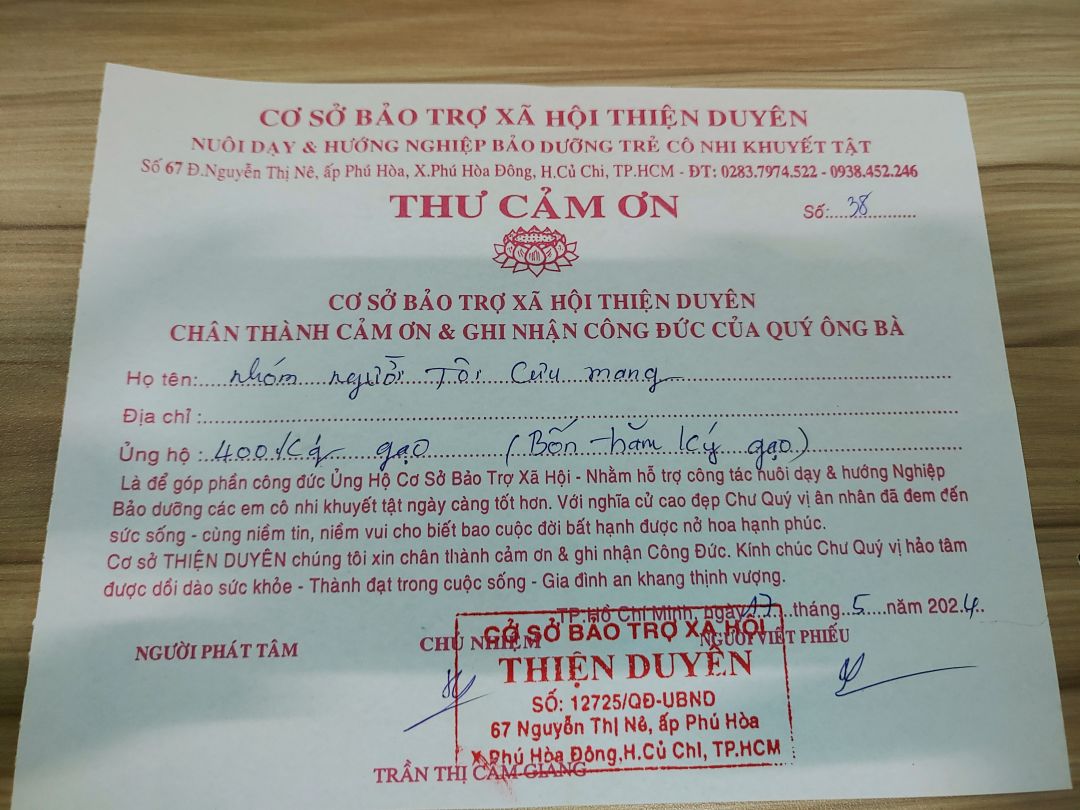 CƠ SỞ BẢO TRỢ XÃ HỘI THIỆN DUYÊN
NUÔI DẠY & HƯỚNG NGHIỆP BẢO DƯỠNG TRẺ CÔ NHI KHUYẾT TẬT
Số 67 Đ.Nguyễn Thị Nê, ấp Phú Hòa, X.Phú Hòa Đông, H.Củ Chi, TP.HCM - ĐT: 0283.7974.522 - 0938.452.246
THƯ CẢM ƠN
Số: 38
CƠ SỞ BẢO TRỢ XÃ HỘI THIỆN DUYÊN
CHÂN THÀNH CẢM ƠN & GHI NHẬN CÔNG ĐỨC CỦA QUÝ ÔNG BÀ
Họ tên: nhóm người Tôi Cưu mang
Địa chỉ :
Ủng hộ : 400 Ký gạo (Bốn trăm Ký gạo)
Là để góp phần công đức Ủng Hộ Cơ Sở Bảo Trợ Xã Hội - Nhằm hỗ trợ công tác nuôi dạy & hướng Nghiệp
Bảo dưỡng các em cô nhi khuyết tật ngày càng tốt hơn. Với nghĩa cử cao đẹp Chư Quý vị ân nhân đã đem đến
sức sống - cùng niềm tin, niềm vui cho biết bao cuộc đời bất hạnh được nở hoa hạnh phúc.
Cơ sở THIỆN DUYÊN chúng tôi xin chân thành cảm ơn & ghi nhận Công Đức. Kính chúc Chư Quý vị hảo tâm
được dồi dào sức khỏe - Thành đạt trong cuộc sống - Gia đình an khang thịnh vượng.
TP.Hồ Chí Minh, ngày 17 tháng 5 năm 2024
NGƯỜI PHÁT TÂM
CHỦ NHIỆM
NGƯỜI VIẾT PHIẾU
CƠ SỞ BẢO TRỢ XÃ HỘI
THIỆN DUYÊN
SỐ: 12725/QĐ-UBND
67 Nguyễn Thị Nê, ấp Phú Hòa
X.Phú Hòa Đông,H.Củ Chi, TP.HCM
TRẦN THỊ CẨM GIANG